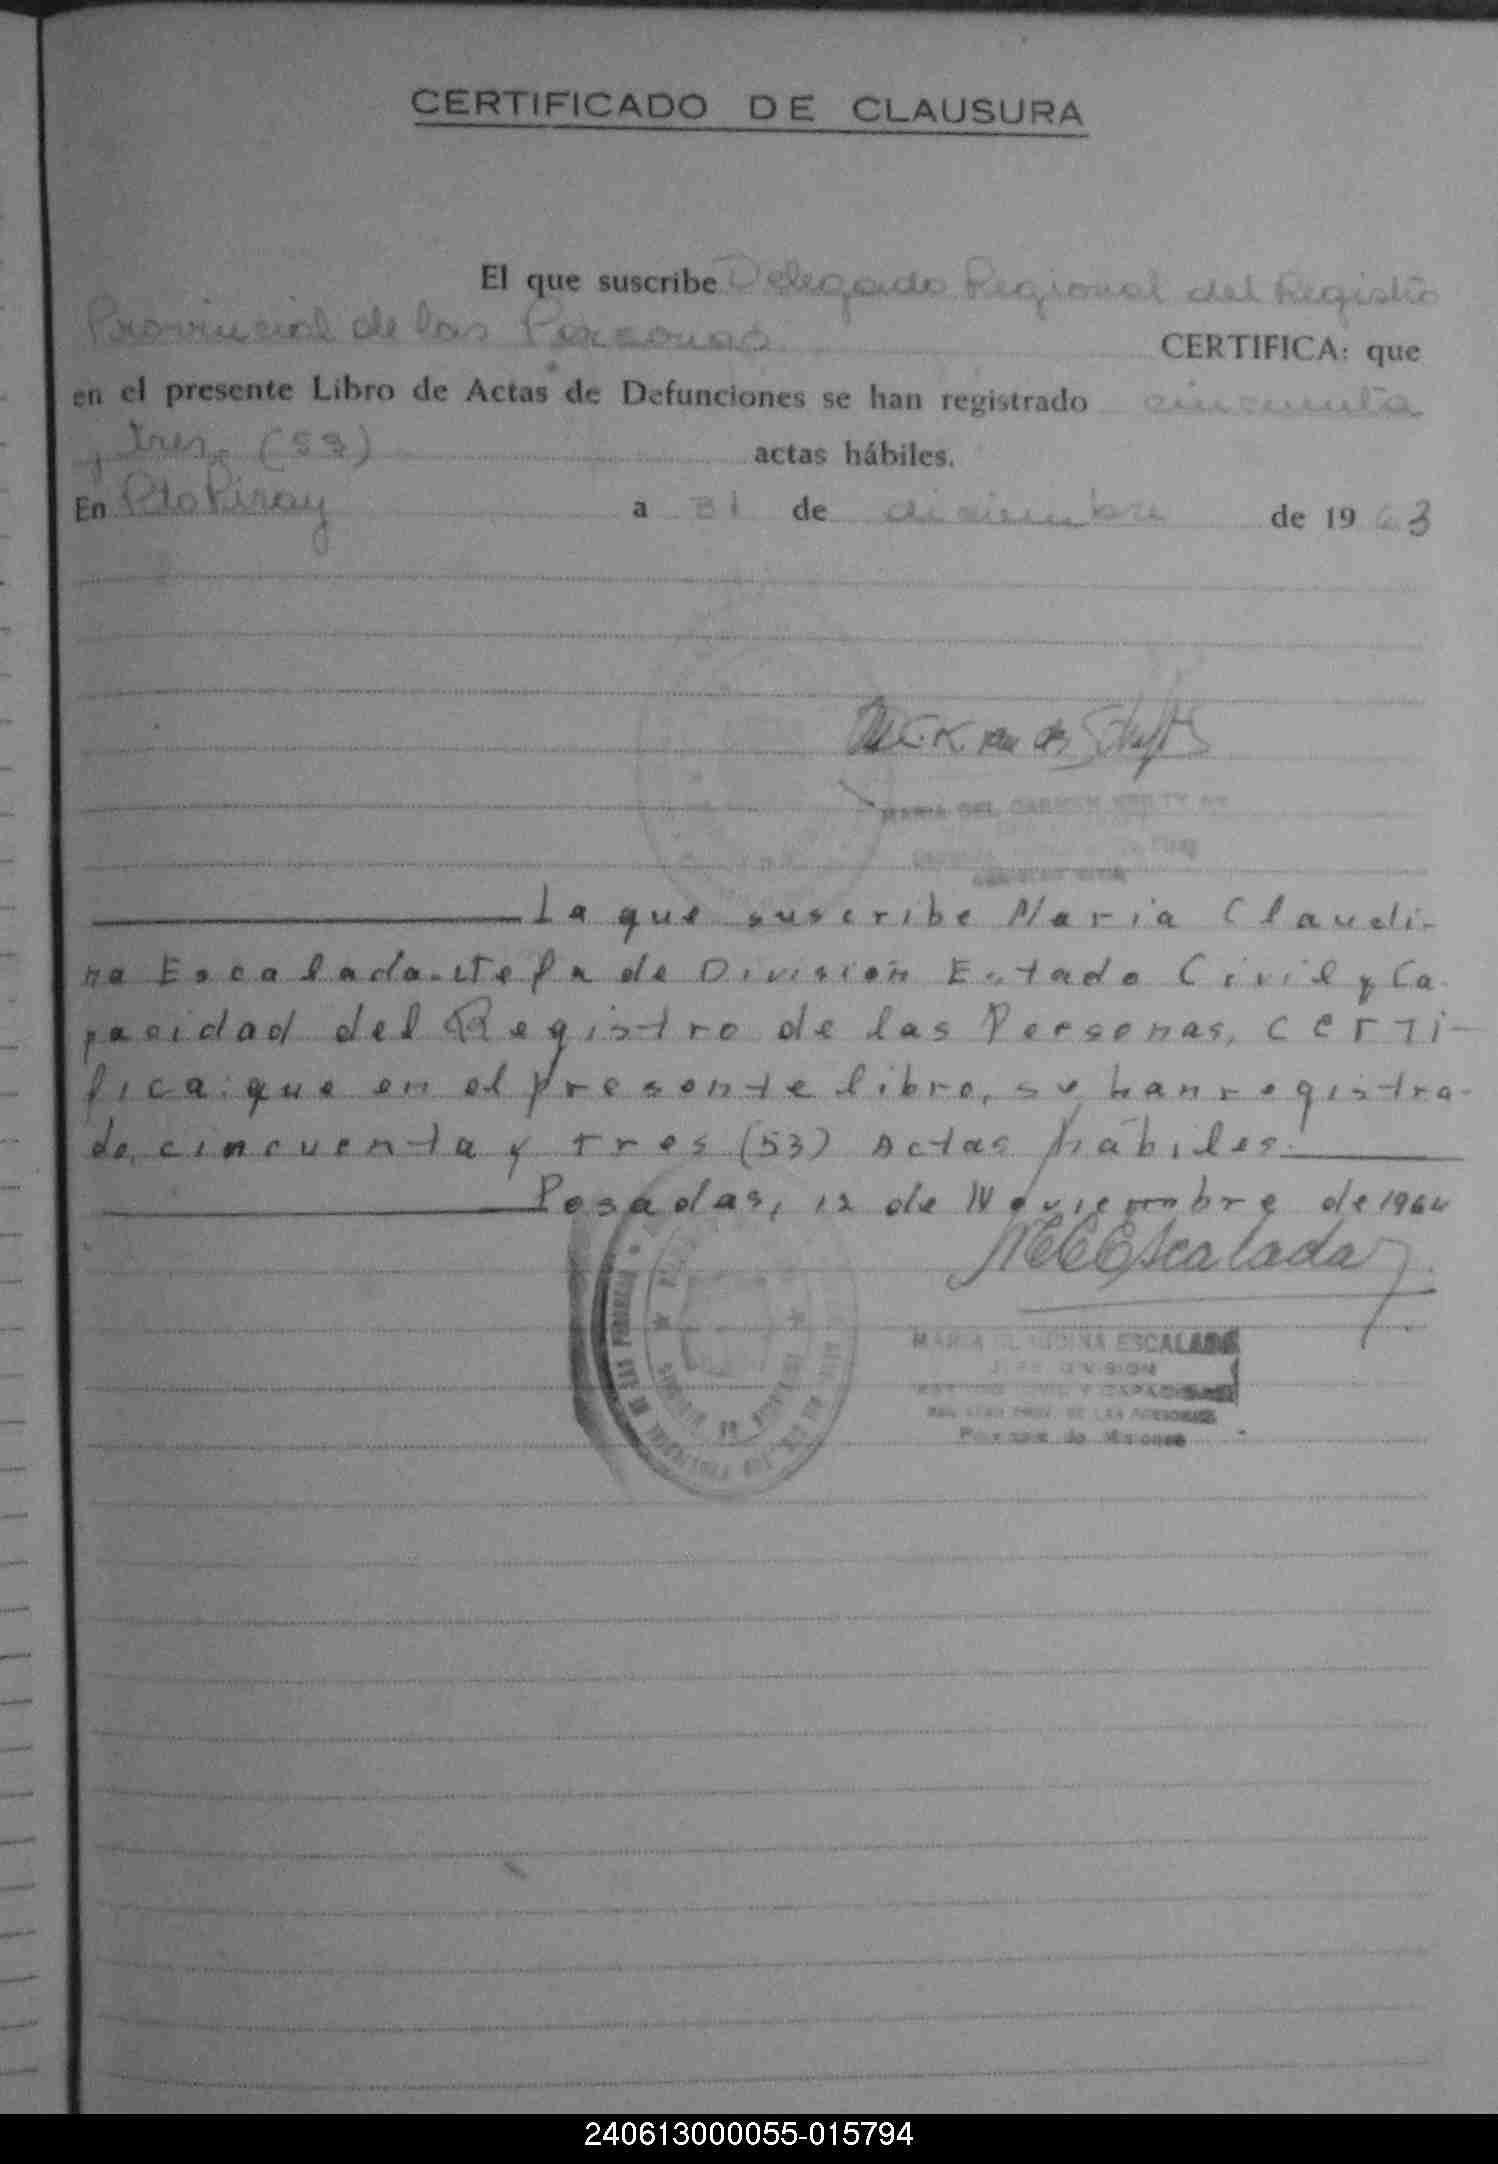 CERTIFICADO DE CLAUSURA
El que suscribe Delegado Regional del Registro
Provincial de las Personas CERTIFICA: que
en el presente Libro de Actas de Defunciones se han registrado cincuenta
y tres (53) actas hábiles.
En Pto Piray a 31 de diciembre de 1963
MARIA DEL CARMEN
La que suscribe Maria Claudi-
na Escalada Jefa de División Estado Civil y Ca-
pacidad del Registro de las Personas, certi-
fica: que en el presente libro, se han registra-
do, cincuenta y tres (53) Actas hábiles.
Posadas, 12 de Noviembre de 1964
MCEscalada
MARIA CLAUDINA ESCALADA
JEFE DIVISION
ESTADO CIVIL Y CAPACIDAD
REGISTRO PROV. DE LAS PERSONAS
Provincia de Misiones
240613000055-015794